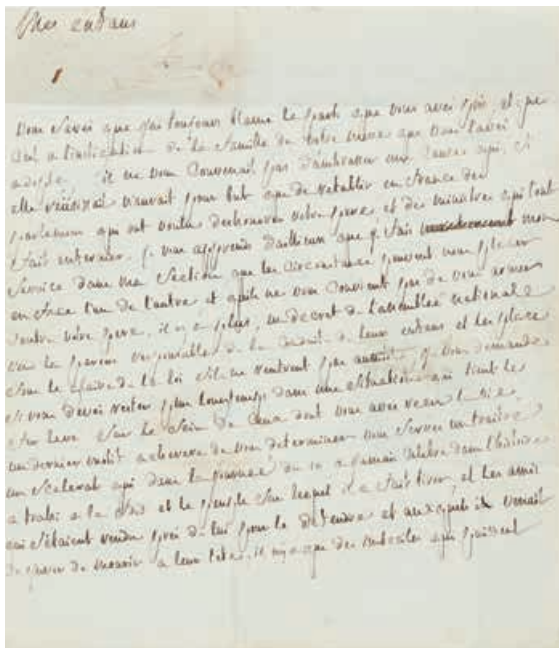 Mes enfans
vous savez que j'ai toujours blamé le parti que vous avez pris et que
c'est a l'instigation de la famille de votre mere que vous l'avez
adopté, il ne vous convenait pas d'embrasser une cause qui, si
elle réussissait n'aurait pour but que de retablir en france des
parlemens qui ont voulu deshonorer votre pere et des ministres qui l'ont
fait enfermer. je vous apprends d'ailleurs que je fais mon
service dans ma section que les circonstances peuvent nous placer
en face l'un de l'autre et qu'il ne vous convient pas de vous armer
contre votre pere. il y a plus, un decret de l'assemblée nationale
rend les parens responsables de la conduite de leurs enfans et les place
sous le glaive de la loi s'ils ne rentrent pas
si vous devez rester plus longtemps dans une situation qui tient le
fer levé sur le sein de ceux dont vous avez recu la vie.
un dernier motif achevera de vous determiner vous servez un traitre
un scelerat qui dans la journée du 10 a jamais celebre dans l'histoire
a trahi a la fois et le peuple sur lequel il a fait tirer et les amis
qui s'étaient rendu près de lui pour le defendre et auxquels il venait
de mourir a leur tete. il n'y a que des imbeciles qui puissent